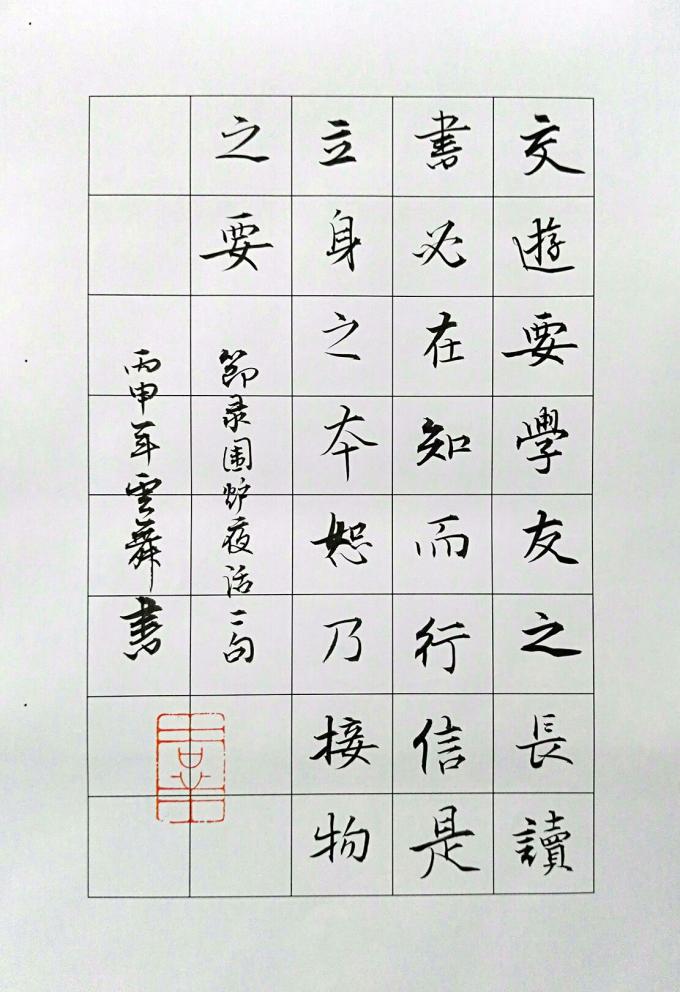 交遊要學友之長讀
書必在知而行信是
立身之本恕乃接物
之要
節录围炉夜话二句
丙申年雲舞書